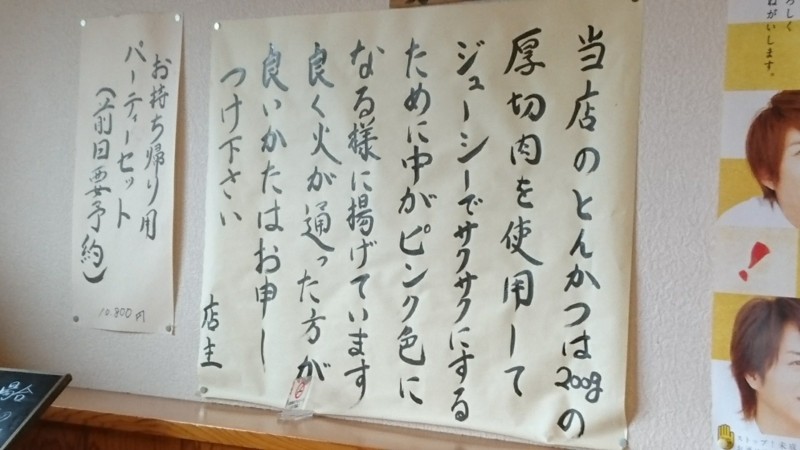 当店のとんかつは200gの
厚切肉を使用して
ジューシーでサクサクにする
ために中がピンク色に
なる様に揚げています
良く火が通った方が
良いかたはお申し
つけ下さい
店主
お持ち帰り用
パーティーセット
(前日要予約)
10.800円
ろしく
ねがいします。
場合